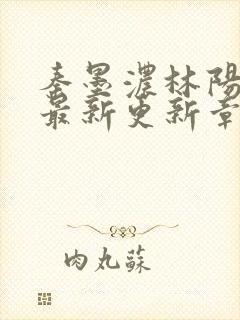 秦墨濃林陽
最新更新章
肉丸蘇